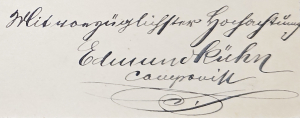 Mit vorzüglichster Hochachtung
Edmund Kühn
Componist